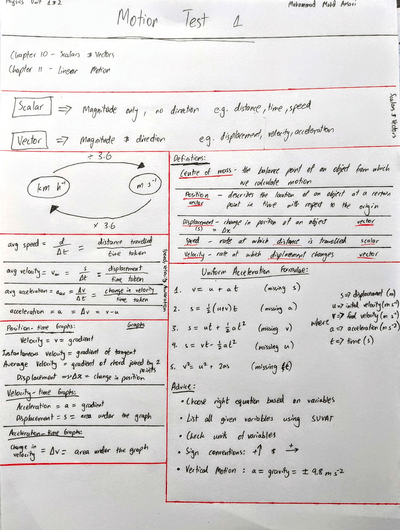 Physics Unit 1&2
Mohammad
Motion Test 1
Chapter 10 - Scalars & Vectors
Chapter 11 - Linear Motion
Scalars & Vectors
Scalar => Magnitude only, no direction e.g. distance, time, speed
Vector => Magnitude & direction e.g. displacement, velocity, acceleration
÷ 3.6
km h⁻¹
m s⁻¹
× 3.6
avg speed = d/Δt = distance travelled/time taken
avg velocity = vav = s/Δt = displacement/time taken
avg acceleration = aav = Δv/Δt = change in velocity/time taken
acceleration = a = Δv = v-u
Graphs
Position-time Graphs:
Velocity = v = gradient
Instantaneous Velocity = gradient of tangent
Average Velocity = gradient of chord joined by 2 points
Displacement => Δx = change in position
Velocity-time Graphs:
Acceleration = a = gradient
Displacement = s = area under the graph
Acceleration-time Graphs:
change in velocity = Δv = area under the graph
Definitions:
Centre of mass - the balance point of an object from which
we calculate motion
Position - describes the location of an object at a certain
vector point in time with respect to the origin
Displacement - change in position of an object vector
(s) = Δx
Speed - rate at which distance is travelled scalar
Velocity - rate at which displacement changes vector
Uniform Acceleration formulae:
1. v = u + at (missing s)
2. s = ½(u+v)t (missing a)
3. s = ut + ½at² (missing v)
4. s = vt - ½at² (missing u)
5. v² = u² + 2as (missing t)
where
s => displacement (m)
u => initial velocity (m s⁻¹)
v => final velocity (m s⁻¹)
a => acceleration (m s⁻²)
t => time (s)
Advice:
• Choose right equation based on variables
• List all given variables using SUVAT
• Check units of variables
• Sign conventions: +↑ & →+
• Vertical Motion: a = gravity = ± 9.8 m s⁻²